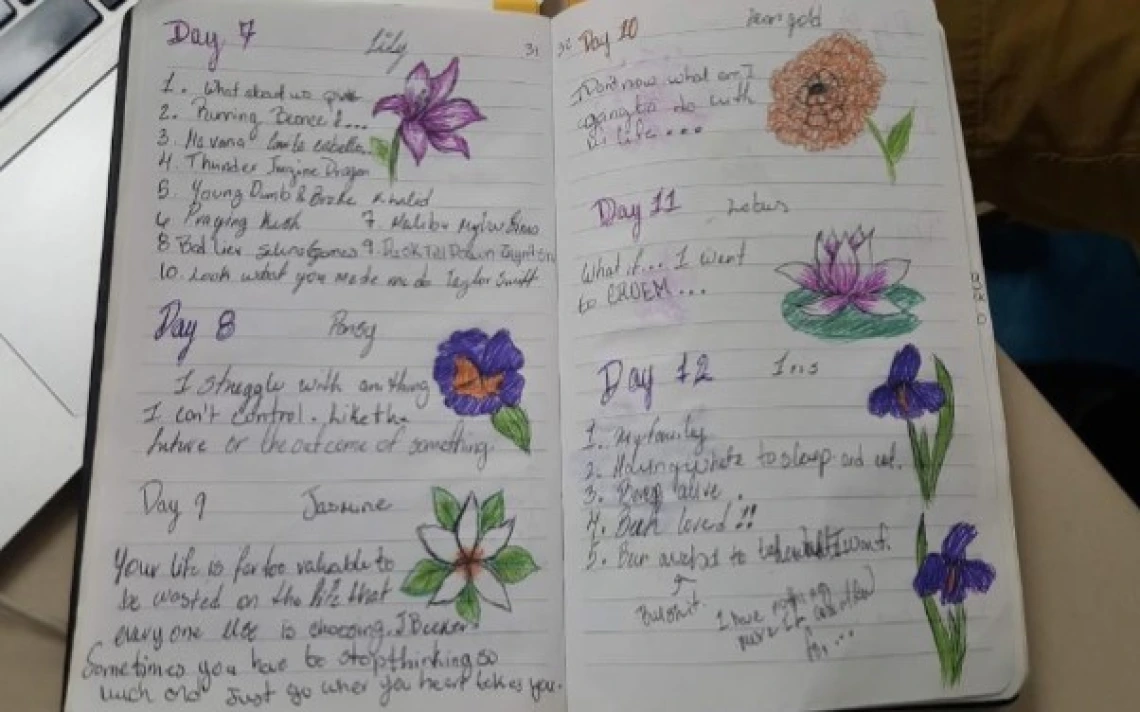 Day 7
Lily
31
1. What about us
2. Running Beonce &...
3. Havana Camila Cabello
4. Thunder Imagine Dragon
5. Young Dumb & Broke Khalid
6 Praying Kesh
7. Malibu Myley
8 Bad Lier Selena Gomes
9. Dusk Till Down Zayn
10. Look what you made me do Taylor Swift
Day 8
Pansy
I struggle with anything
I can't control. Like the
future or the outcome of something.
Day 9
Jasmine
Your life is far too valuable to
be wasted on the life that
everyone else is choosing. J Becker.
Sometimes you have be stop thinking so
much and Just go wher you heart takes you.
32
Day 10
what am I
going to do with
life...
Day 11
Lotus
What if... I want
to
Day 12
Iris
1. My family
2. to sleep and eat.
3. alive.
4. loved !!
5. to want.
Bullshit.
I have nothing
for...